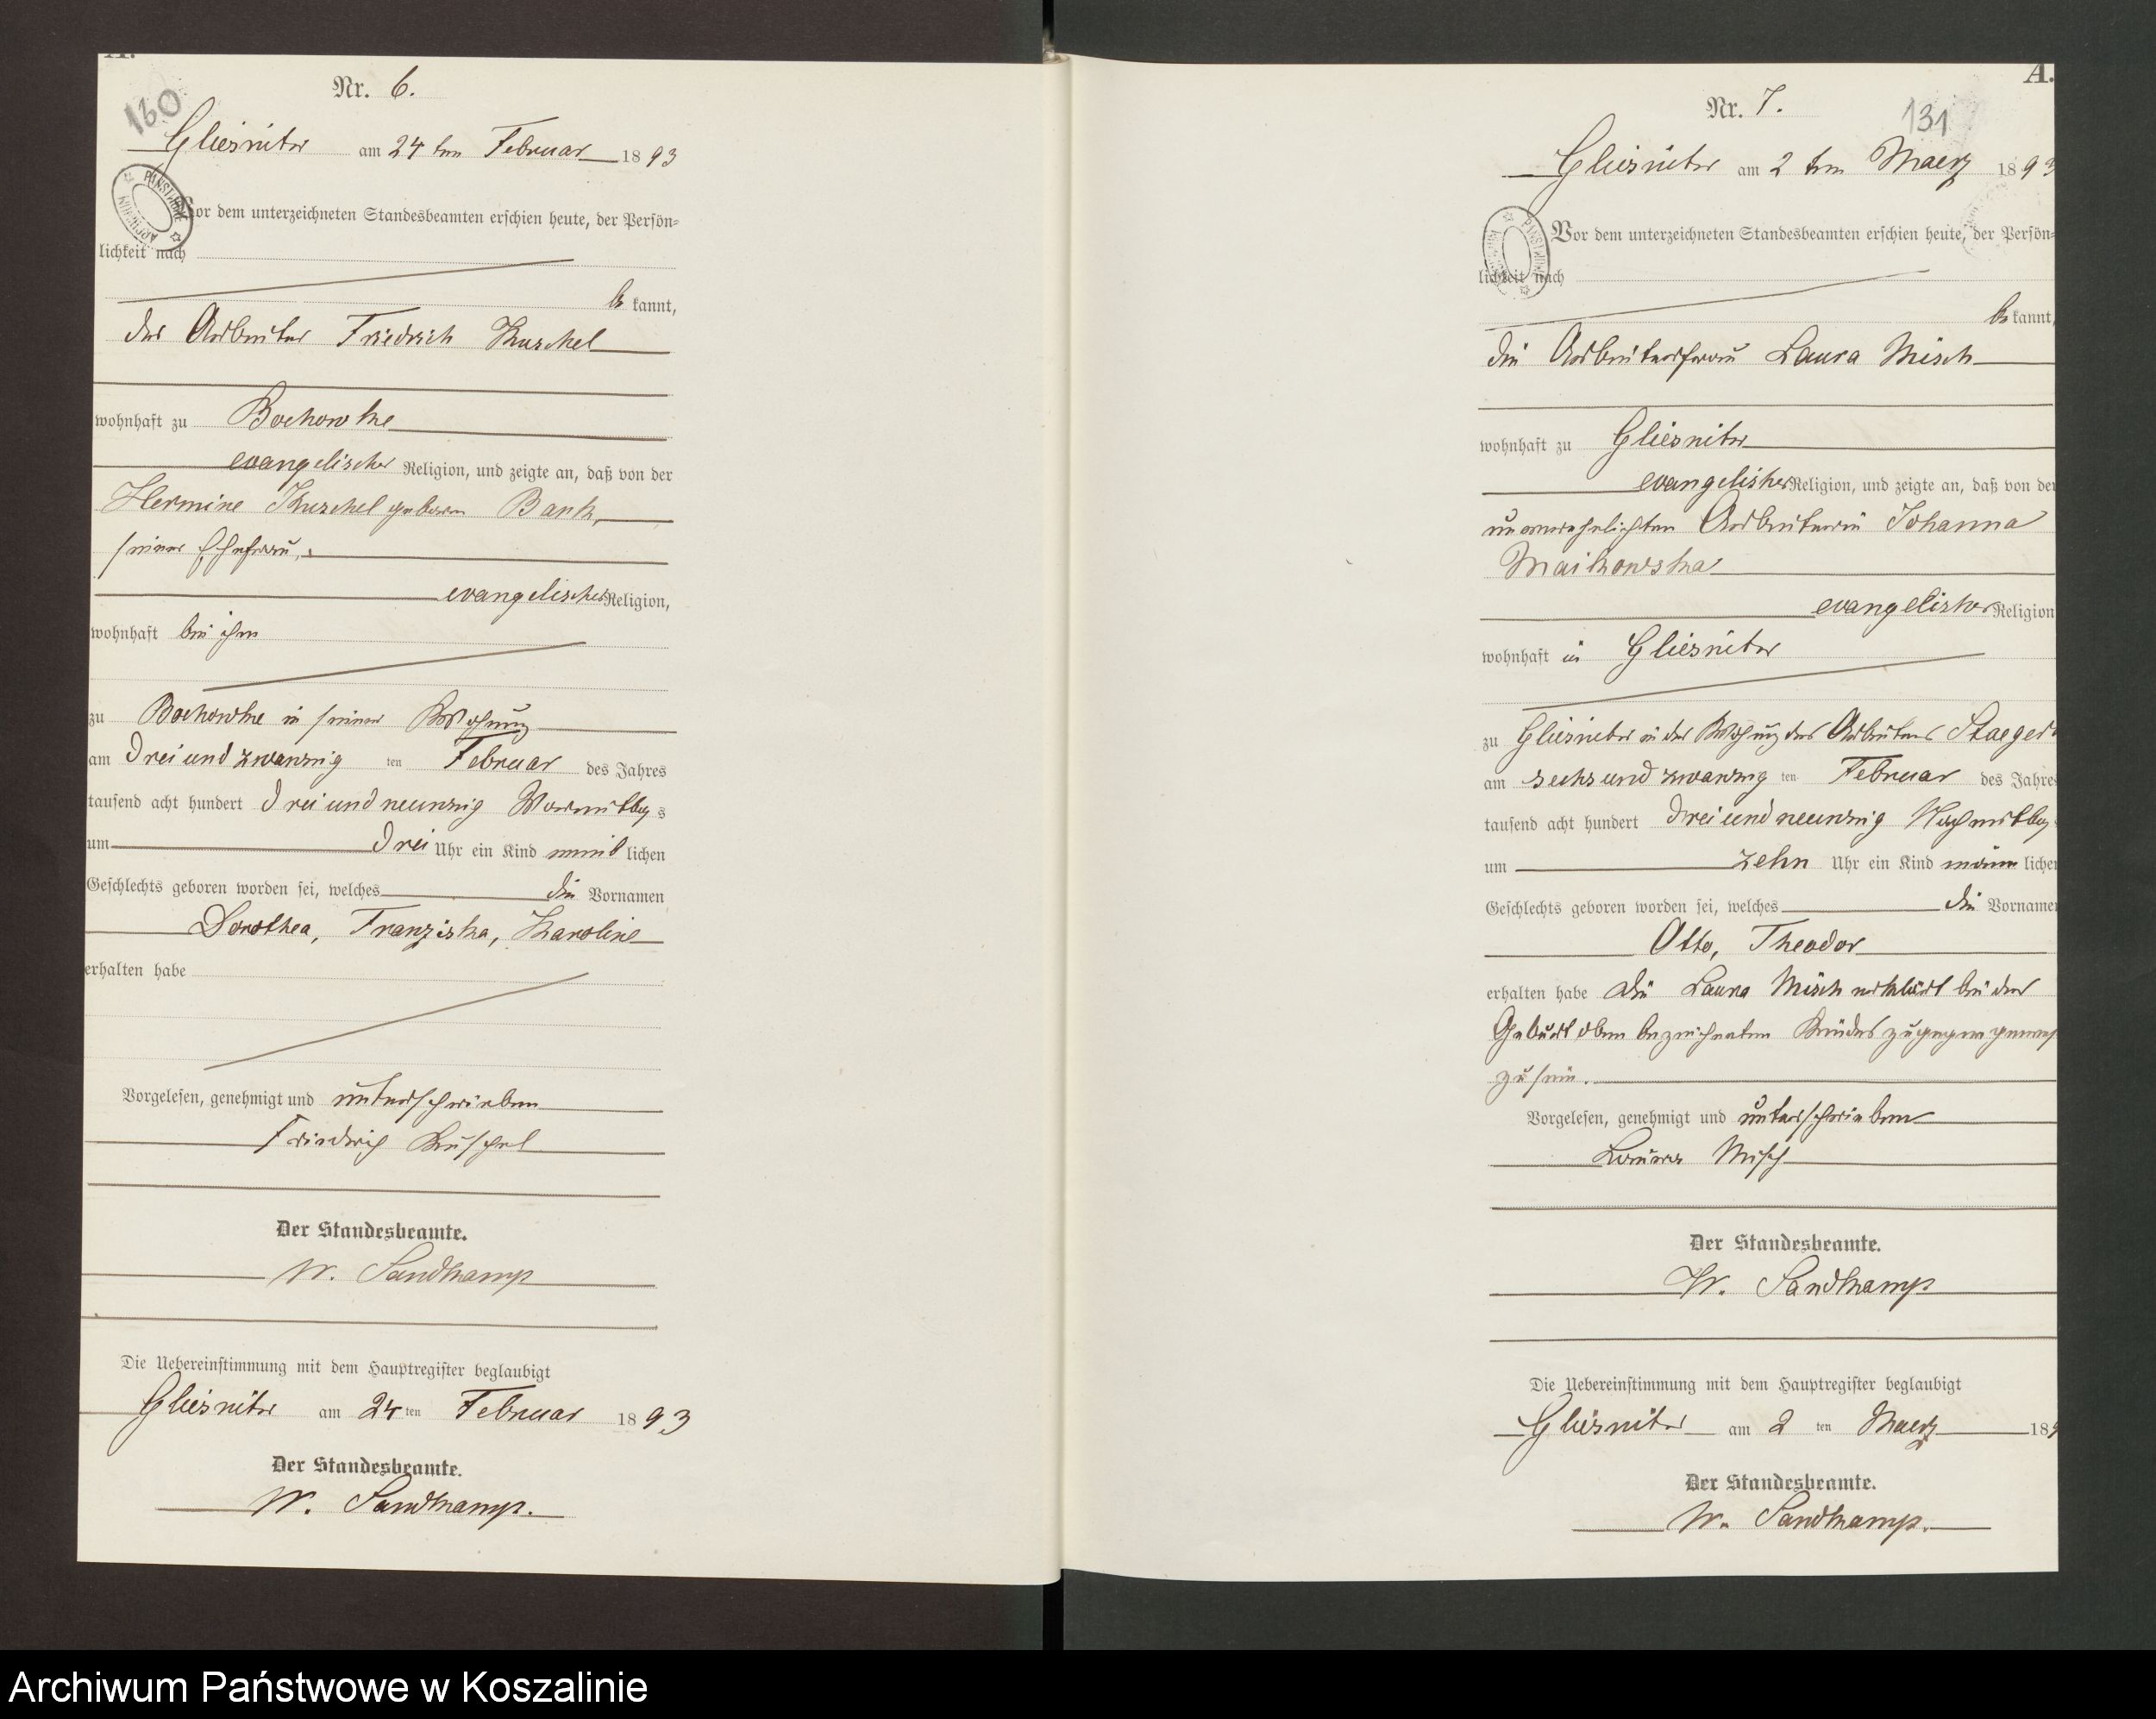 A.
Nr. 6.
130
Gliesnitz am 24 ten Februar 1893
Vor dem unterzeichneten Standesbeamten erschien heute, der Persön-
lichkeit nach
be kannt,
der Arbeiter Friedrich Kuschel
wohnhaft zu Bochowke
evangelischer Religion, und zeigte an, daß von der
Hermine Kuschel geboren Bank,
seiner Ehefrau,
evangelischer Religion,
wohnhaft bei ihm
zu Bochowke in seiner Wohnung
am drei und zwanzig ten Februar des Jahres
tausend acht hundert drei und neunzig Vormittag s
um drei Uhr ein Kind weib lichen
Geschlechts geboren worden sei, welches die Vornamen
Dorothea, Franziska, Karoline
erhalten habe
Vorgelesen, genehmigt und unterschrieben
Friedrich Kuschel
Der Standesbeamte.
W. Sandkamp
Die Uebereinstimmung mit dem Hauptregister beglaubigt
Gliesnitz am 24 ten Februar 1893
Der Standesbeamte.
W. Sandkamp.
A.
Nr. 7.
131
Gliesnitz am 2 ten Maerz 1893
Vor dem unterzeichneten Standesbeamten erschien heute, der Persön-
lichkeit nach
be kannt,
die Arbeiterfrau Laura Misch
wohnhaft zu Gliesnitz
evangelischer Religion, und zeigte an, daß von der
unverehelichten Arbeiterin Johanna
Maikowska
evangelischer Religion
wohnhaft in Gliesnitz
zu Gliesnitz in der Wohnung des Arbeiters Staeger
am sechs und zwanzig ten Februar des Jahres
tausend acht hundert drei und neunzig Nachmittag
um zehn Uhr ein Kind männ lichen
Geschlechts geboren worden sei, welches die Vornamen
Otto, Theodor
erhalten habe Die Laura Misch erklärt bei der
Geburt oben bezeichneten Kindes zugegen gewes
zu sein.
Vorgelesen, genehmigt und unterschrieben
Laura Misch
Der Standesbeamte.
W. Sandkamp
Die Uebereinstimmung mit dem Hauptregister beglaubigt
Gliesnitz am 2 ten Maerz 189
Der Standesbeamte.
W. Sandkamp.
Archiwum Państwowe w Koszalinie